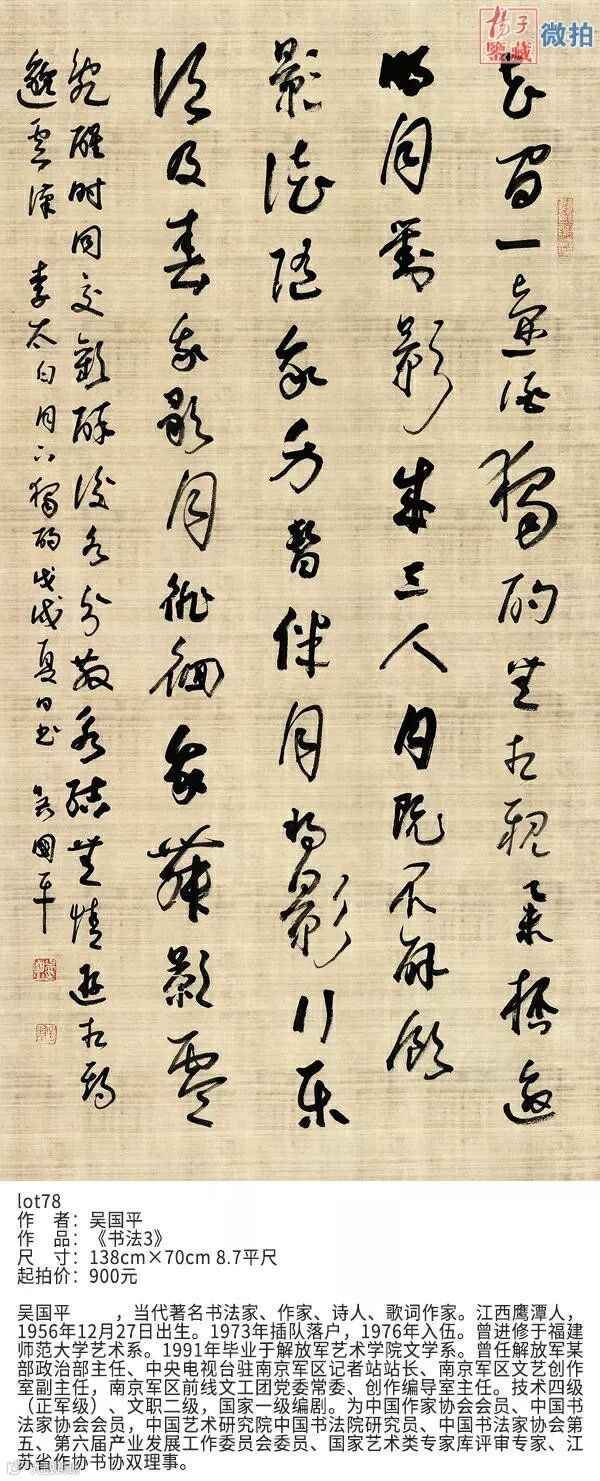 揚子鑒藏 微拍
花間一壺酒獨酌無相親舉杯邀
明月對影成三人月既不解飲
影徒隨我身暫伴月將影行樂
須及春我歌月徘徊我舞影零
亂醒時同交歡醉後各分散永結無情遊相期
邈雲漢 李太白月下獨酌戊戌夏日書 吳國平
lot78
作 者：吴国平
作 品：《书法3》
尺 寸：138cm×70cm 8.7平尺
起拍价：900元
吴国平 ，当代著名书法家、作家、诗人、歌词作家。江西鹰潭人，
1956年12月27日出生。1973年插队落户，1976年入伍。曾进修于福建
师范大学艺术系。1991年毕业于解放军艺术学院文学系。曾任解放军某
部政治部主任、中央电视台驻南京军区记者站站长、南京军区文艺创作
室副主任，南京军区前线文工团党委常委、创作编导室主任。技术四级
（正军级）、文职二级，国家一级编剧。为中国作家协会会员、中国书
法家协会会员，中国艺术研究院中国书法院研究员、中国书法家协会第
五、第六届产业发展工作委员会委员、国家艺术类专家库评审专家、江
苏省作协书协双理事。